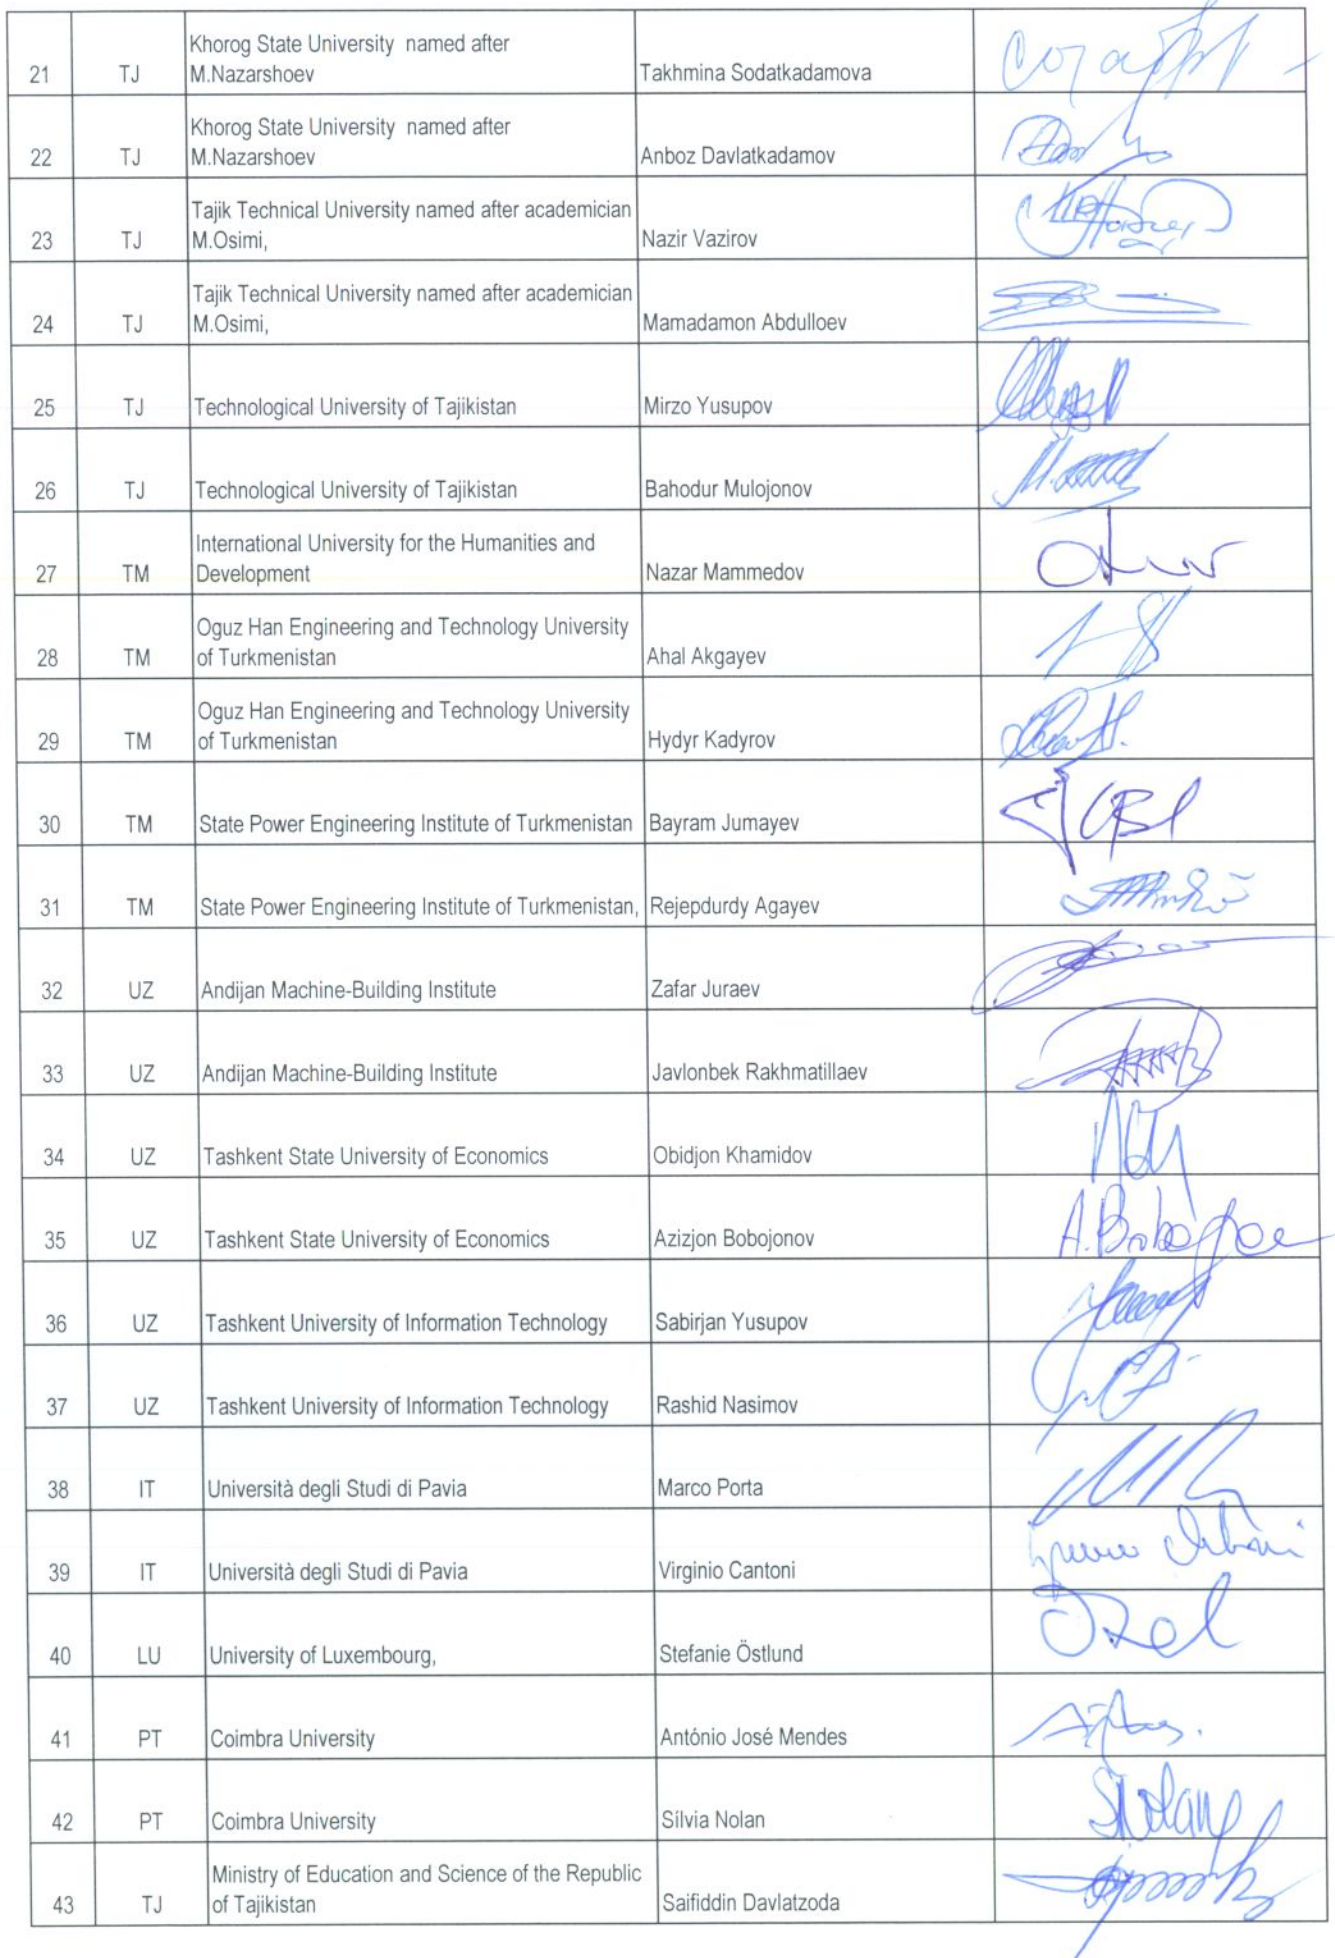 Khorog State University named after
21 TJ M.Nazarshoev Takhmina Sodatkadamova
Khorog State University named after
22 TJ M.Nazarshoev Anboz Davlatkadamov
Tajik Technical University named after academician
23 TJ M.Osimi, Nazir Vazirov
Tajik Technical University named after academician
24 TJ M.Osimi, Mamadamon Abdulloev
25 TJ Technological University of Tajikistan Mirzo Yusupov
26 TJ Technological University of Tajikistan Bahodur Mulojonov
International University for the Humanities and
27 TM Development Nazar Mammedov
Oguz Han Engineering and Technology University
28 TM of Turkmenistan Ahal Akgayev
Oguz Han Engineering and Technology University
29 TM of Turkmenistan Hydyr Kadyrov
30 TM State Power Engineering Institute of Turkmenistan Bayram Jumayev
31 TM State Power Engineering Institute of Turkmenistan, Rejepdurdy Agayev
32 UZ Andijan Machine-Building Institute Zafar Juraev
33 UZ Andijan Machine-Building Institute Javlonbek Rakhmatillaev
34 UZ Tashkent State University of Economics Obidjon Khamidov
35 UZ Tashkent State University of Economics Azizjon Bobojonov
36 UZ Tashkent University of Information Technology Sabirjan Yusupov
37 UZ Tashkent University of Information Technology Rashid Nasimov
38 IT Università degli Studi di Pavia Marco Porta
39 IT Università degli Studi di Pavia Virginio Cantoni
40 LU University of Luxembourg, Stefanie Östlund
41 PT Coimbra University António José Mendes
42 PT Coimbra University Sílvia Nolan SNolan
Ministry of Education and Science of the Republic
43 TJ of Tajikistan Saifiddin Davlatzoda